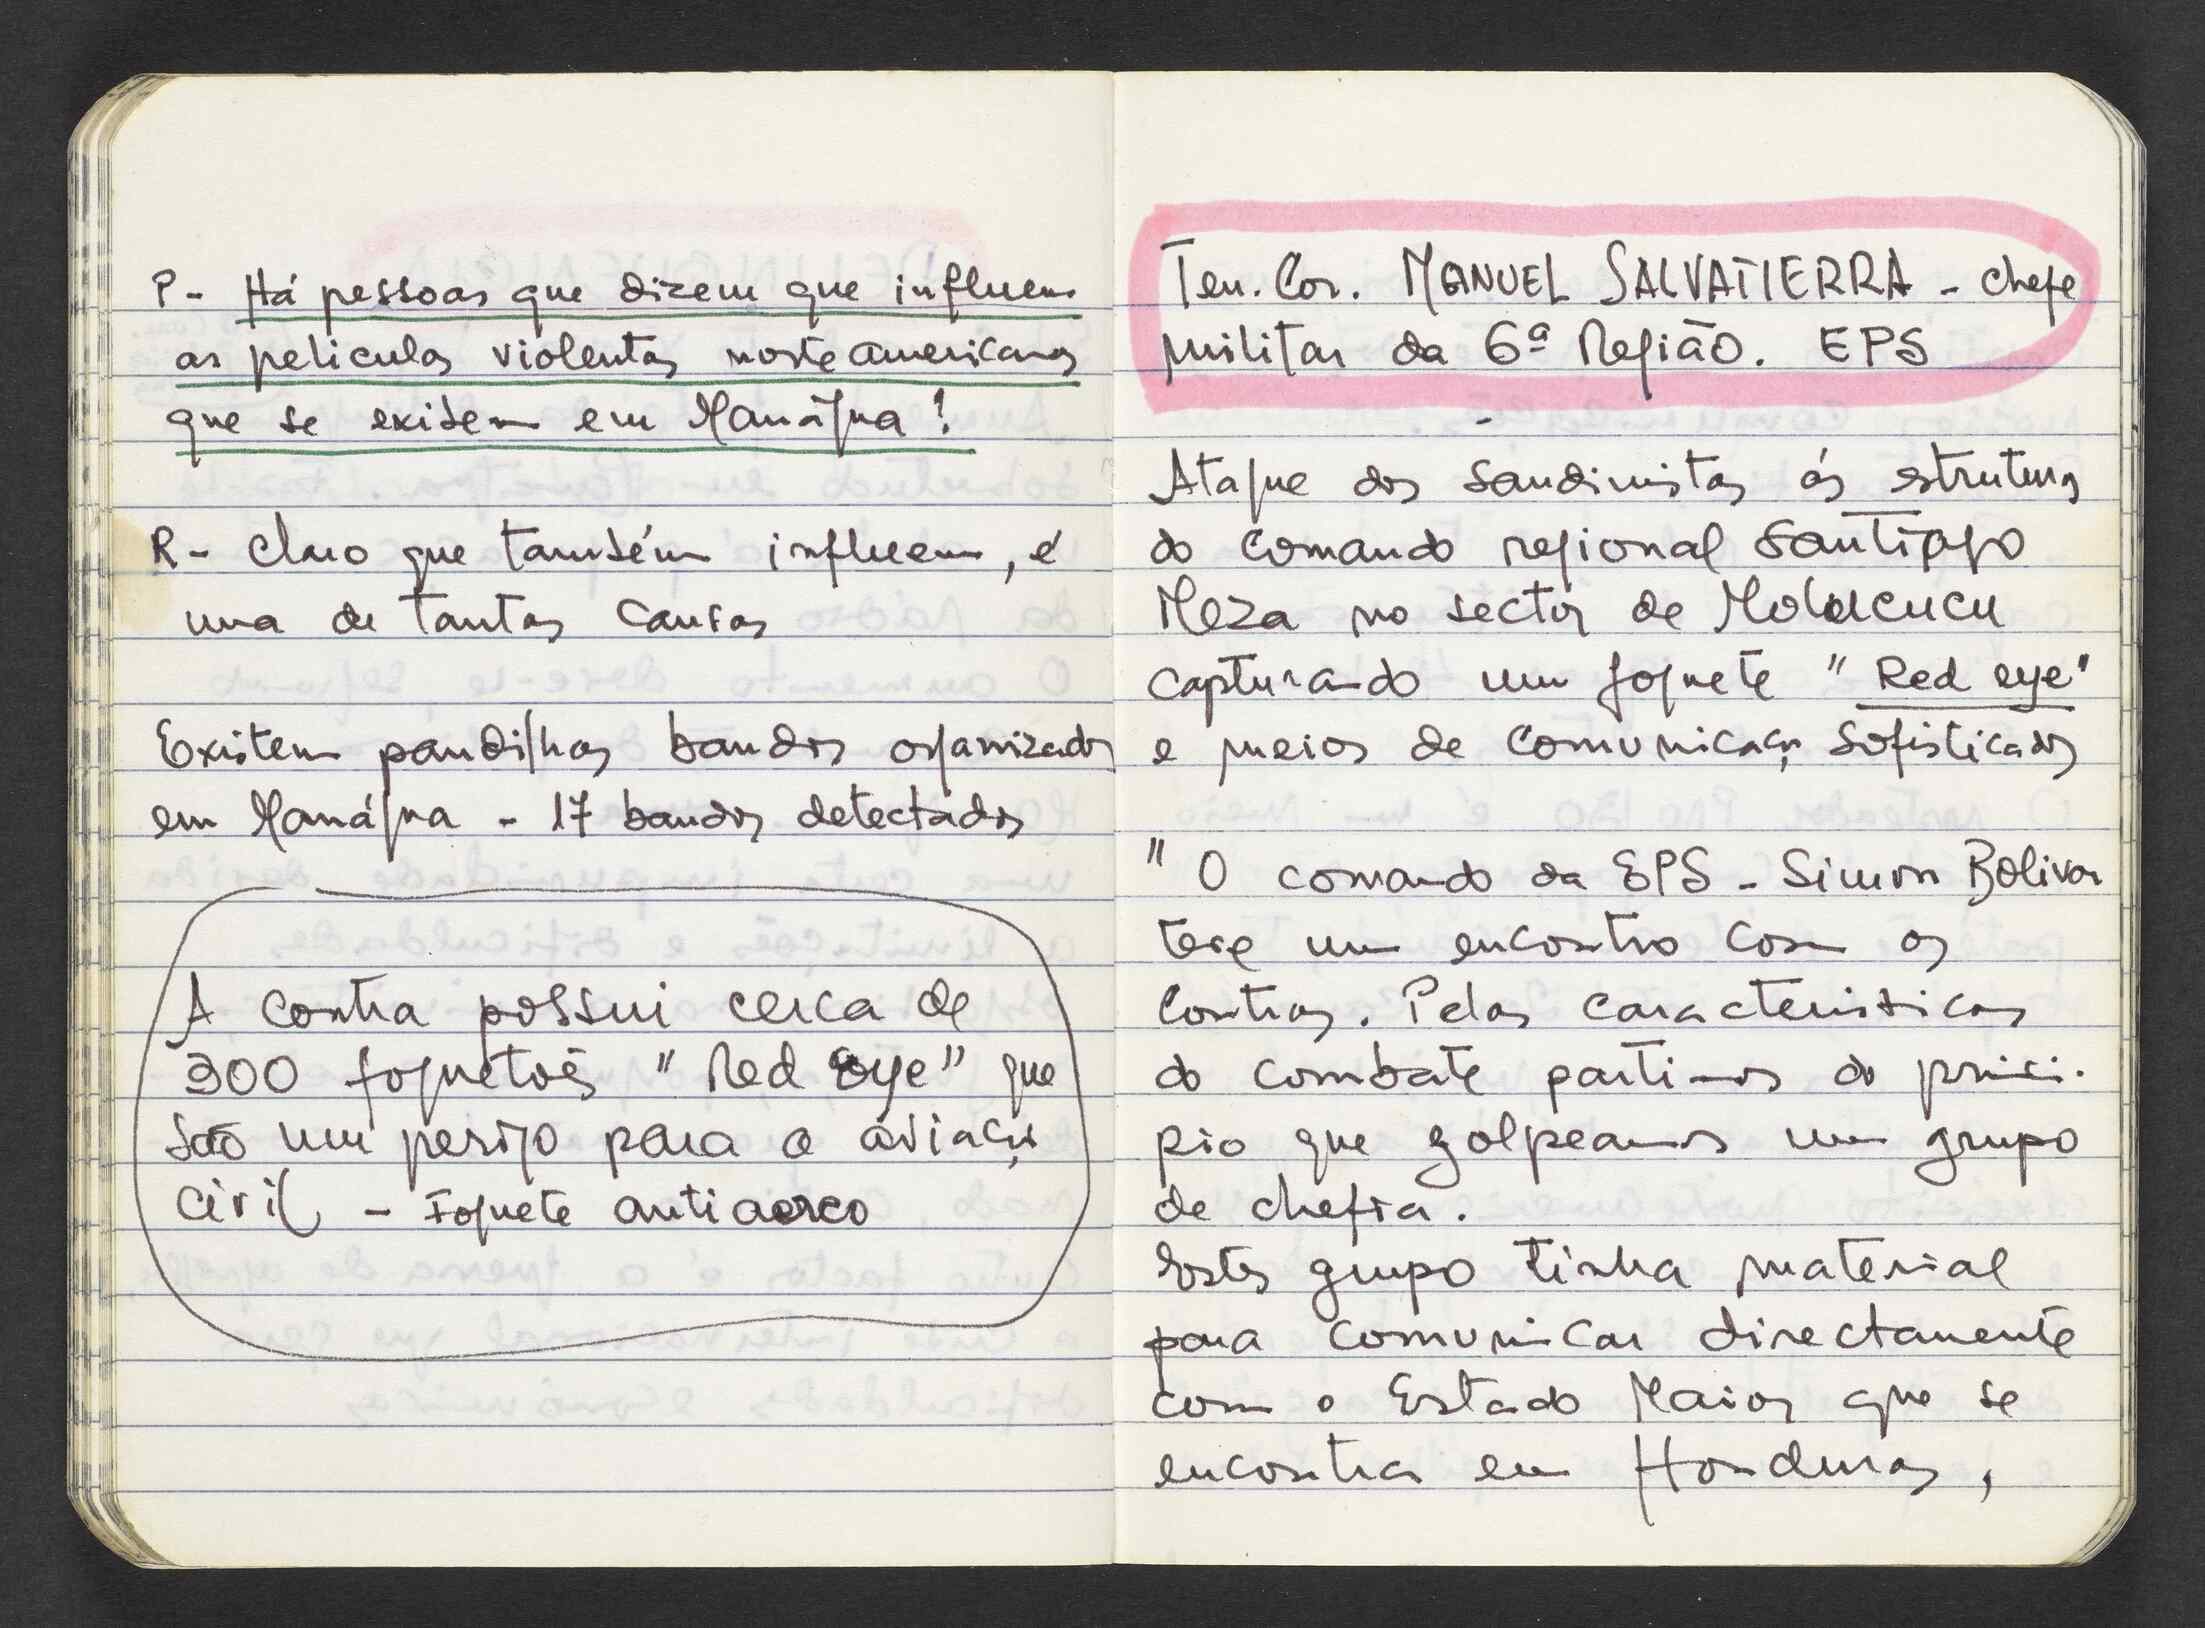 P - Há pessoas que dizem que influem
as peliculas violentas norte americanas
que se exibem em Manágua?
R - Claro que também influem, é
uma de tantas causas
Existem pandilhas bandos organizados
em Manágua - 17 bandos detectados
A contra possui cerca de
300 foguetões "Red Eye" que
são um perigo para a aviação
civil - Foguete antiaereo
Ten. Cor. MANUEL SALVATIERRA - chefe
militar da 6ª Região. EPS
Ataque dos sandinistas ás estruturas
do comando regional Santiago
Meza no sector de Molucucu
capturando um foguete "Red eye"
e meios de comunicação sofisticados
"O comando da EPS - Simon Bolivar
teve um encontro com os
contras. Pelas caracteristicas
do combate partimos do princi-
pio que golpeamos um grupo
de chefia.
Estes grupo tinha material
para comunicar directamente
com o Estado Maior que se
encontra em Honduras,